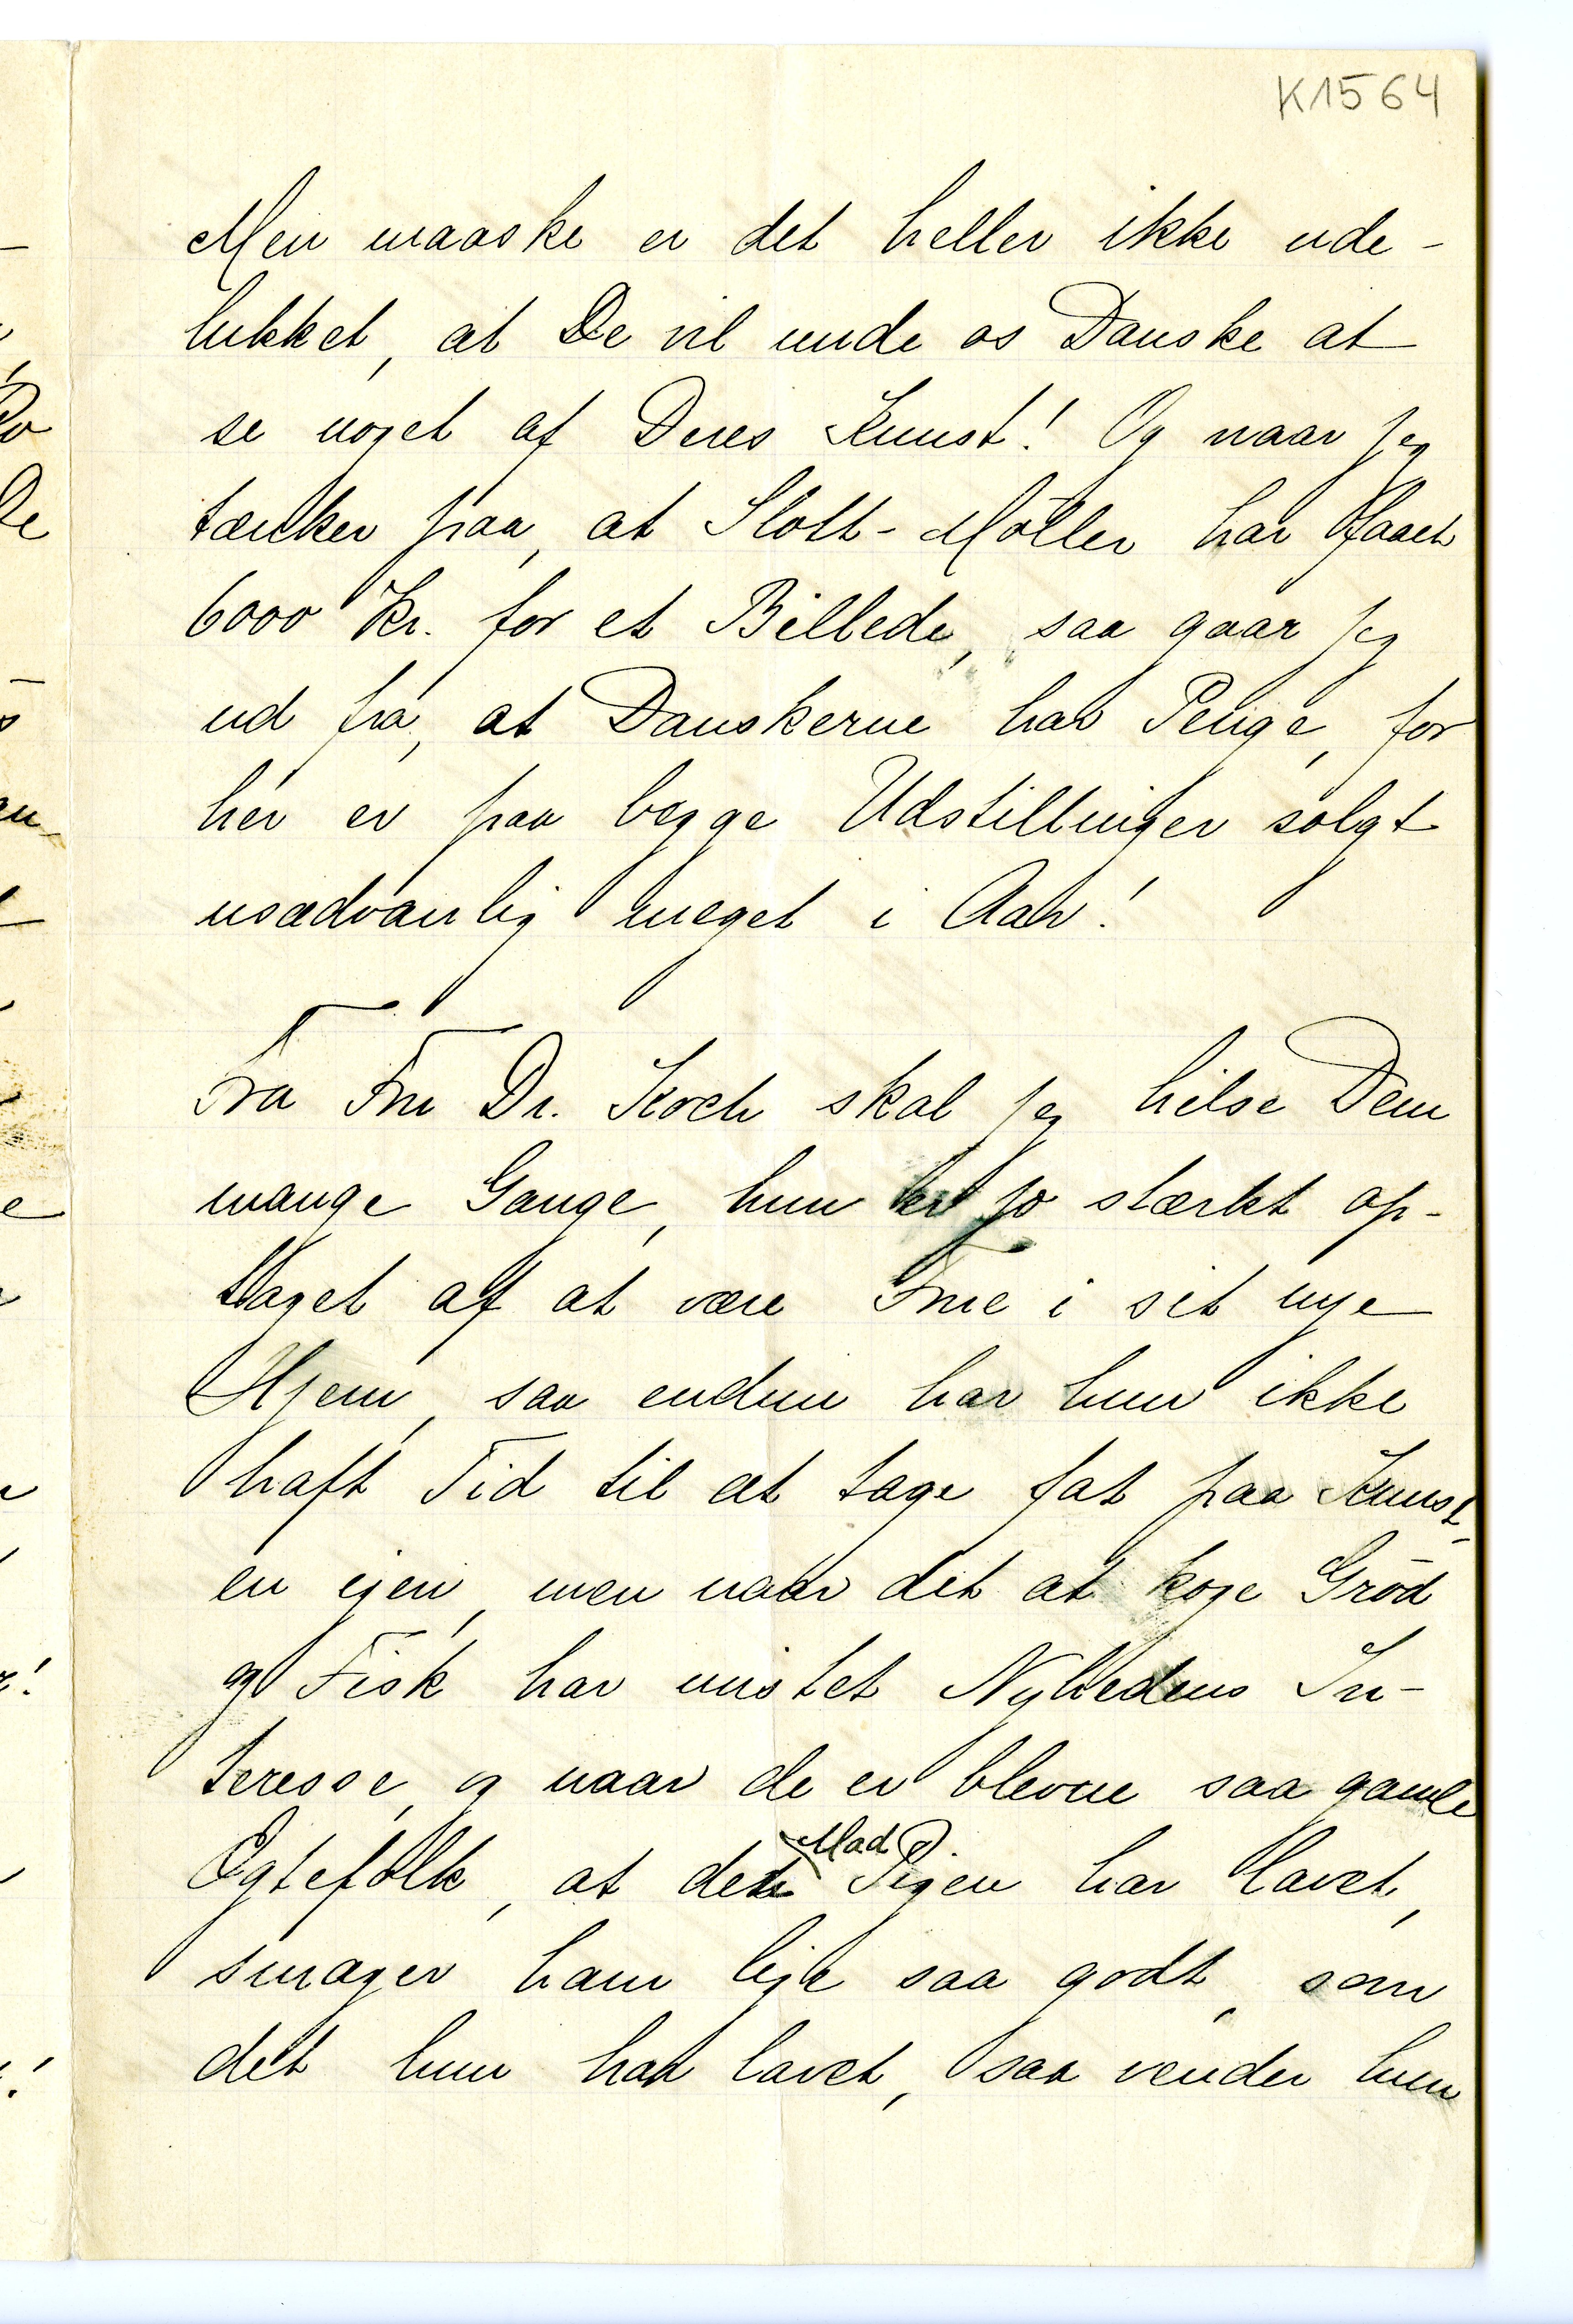 K1564
Men maaske er det heller ikke ude-
lukket, at De vil unde os Danske at
se noget af Deres Kunst! Og naar jeg
tænker paa, at Slott-Möller har faaet
6000 Kr. for et Billede, saa gaar jeg
ud fra, at Danskerne har Penge, for
her er paa begge Udstillinger solgt
usædvanlig meget i Aar!
Fra Fru Dr. Koch skal jeg hilse Dem
mange Gange, hun er jo stærkt op-
taget af at være Frue i sit nye
Hjem, saa endnu har hun ikke
haft Tid til at tage fat paa Kunst-
en igen, men naar det at koge Gröd
og Fisk har mistet Nyhedens In-
teresse, og naar de er blevne saa gamle
Ægtefolk, at den Mad Pigen har lavet,
smager ham lige saa godt, som
det hun har lavet, saa vender hun